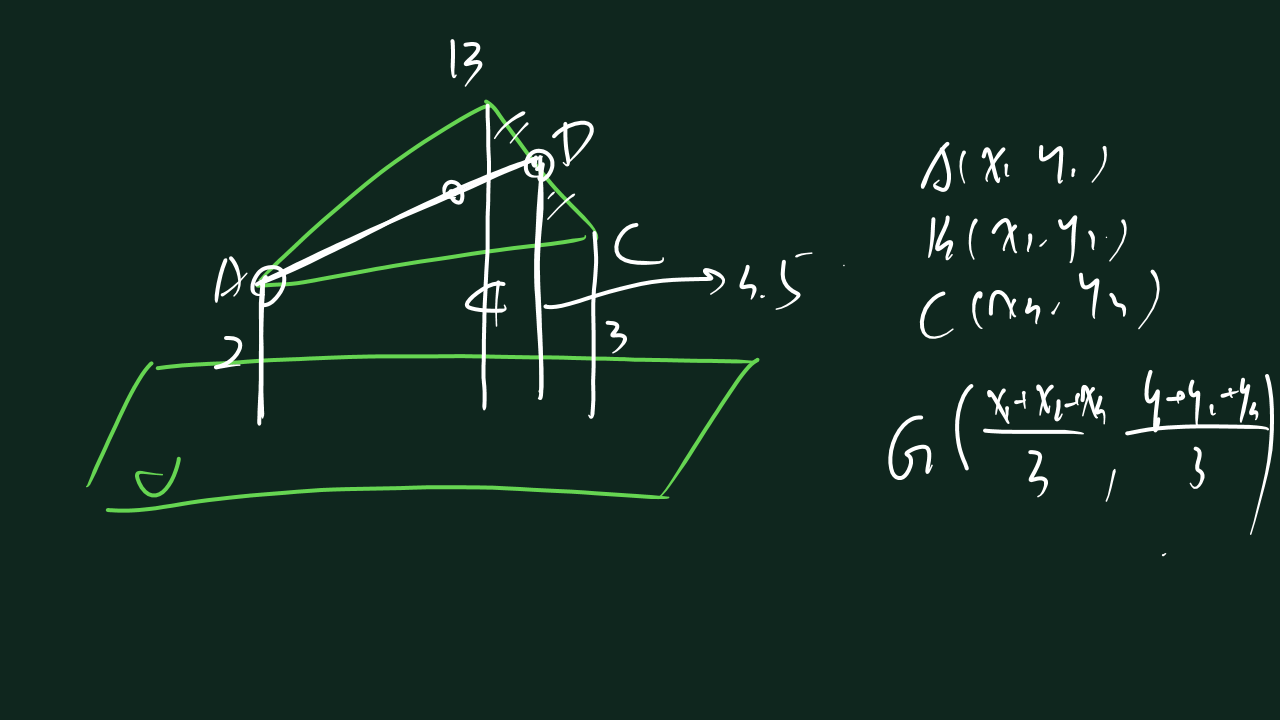 B
D
A
C
2
3
4.5
A(x₁ y₁)
B(x₂, y₂)
C(x₃, y₃)
G(x₁+x₂+x₃/3, y₁+y₂+y₃/3)